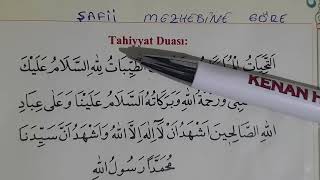 ŞAFİİ MEZHEBİNE GÖRE
Tahiyyat Duası:
اَلتَّحِيَّاتُ الطَّيِّبَاتُ لِلّٰهِ اَلسَّلَامُ عَلَيْكَ
وَرَحْمَةُ اللّٰهِ وَبَرَكَاتُهُ اَلسَّلَامُ عَلَيْنَا وَعَلٰى عِبَادِ
اللّٰهِ الصَّالِحِينَ اَشْهَدُ اَنْ لَٓا اِلٰهَ اِلَّا اللّٰهُ وَاَشْهَدُ اَنَّ سَيِّدَنَا
مُحَمَّدًا رَسُولُ اللّٰهِ
KENAN